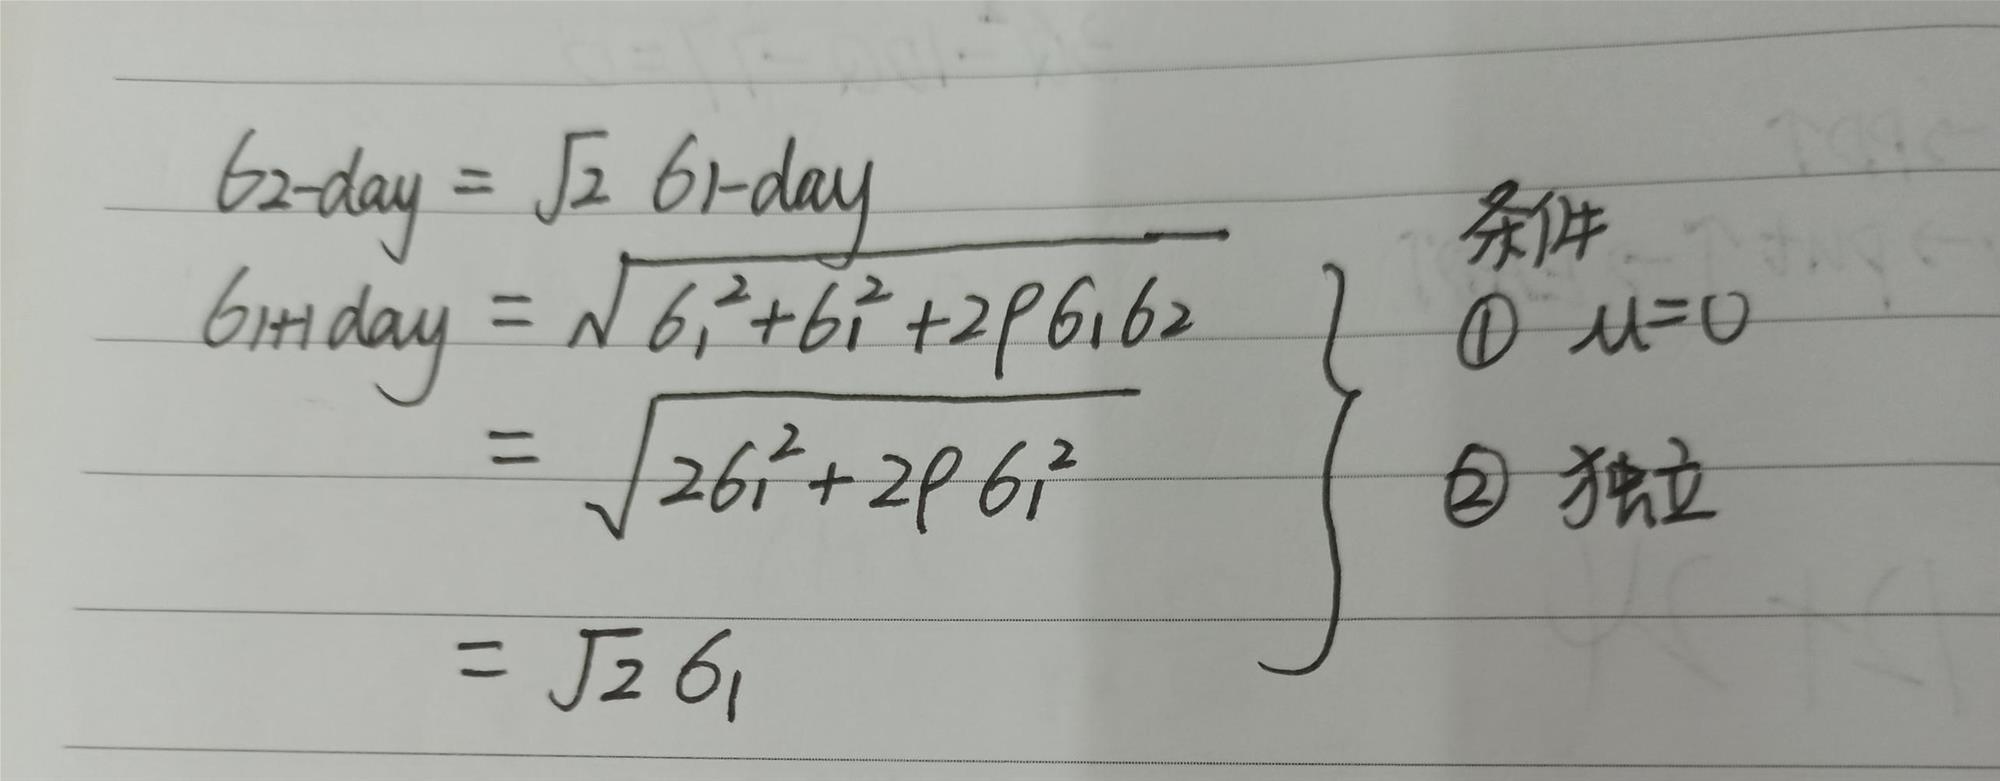 σ2-day = √2 σ1-day
σ1+1day = √(σ₁² + σ₁² + 2ρσ₁σ₂)
= √(2σ₁² + 2ρσ₁²)
= √2 σ₁
条件
① μ=0
② 独立